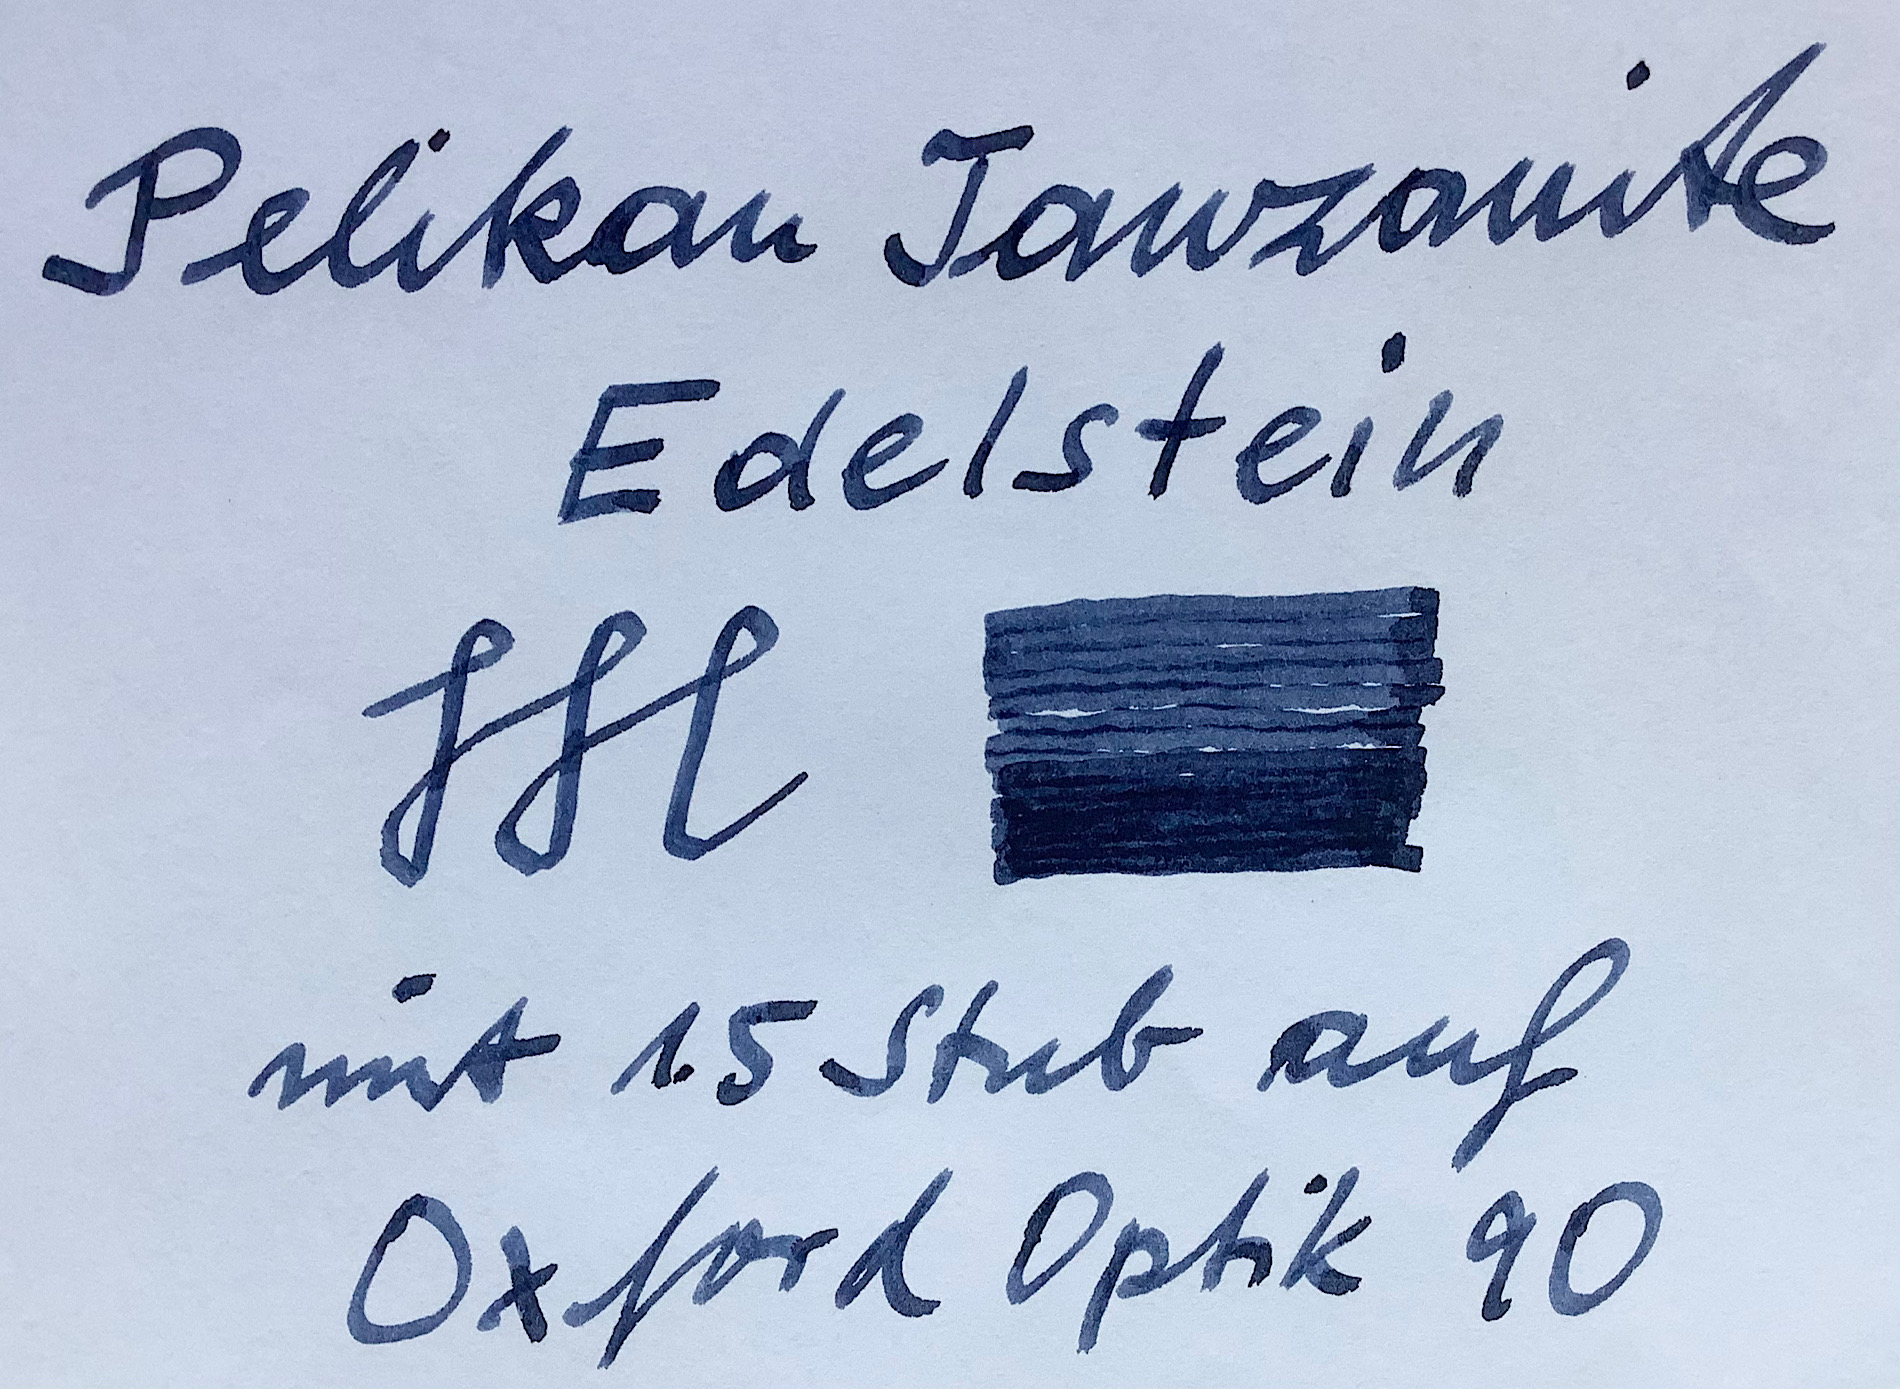 Pelikan Tanzanite
Edelstein
mit 1.5 Stub auf
Oxford Optik 90